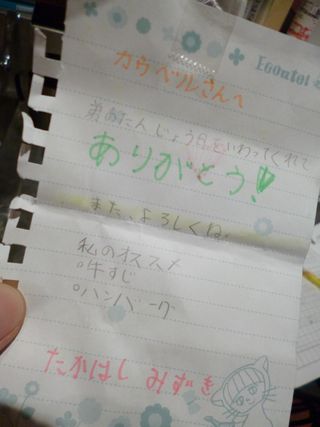 Egoutoi
カウベルさんへ
弟のたんじょう日をいわってくれて
ありがとう!
また、よろしくね。
私のオススメ
°牛すじ
°ハンバーグ
たかはし みずき